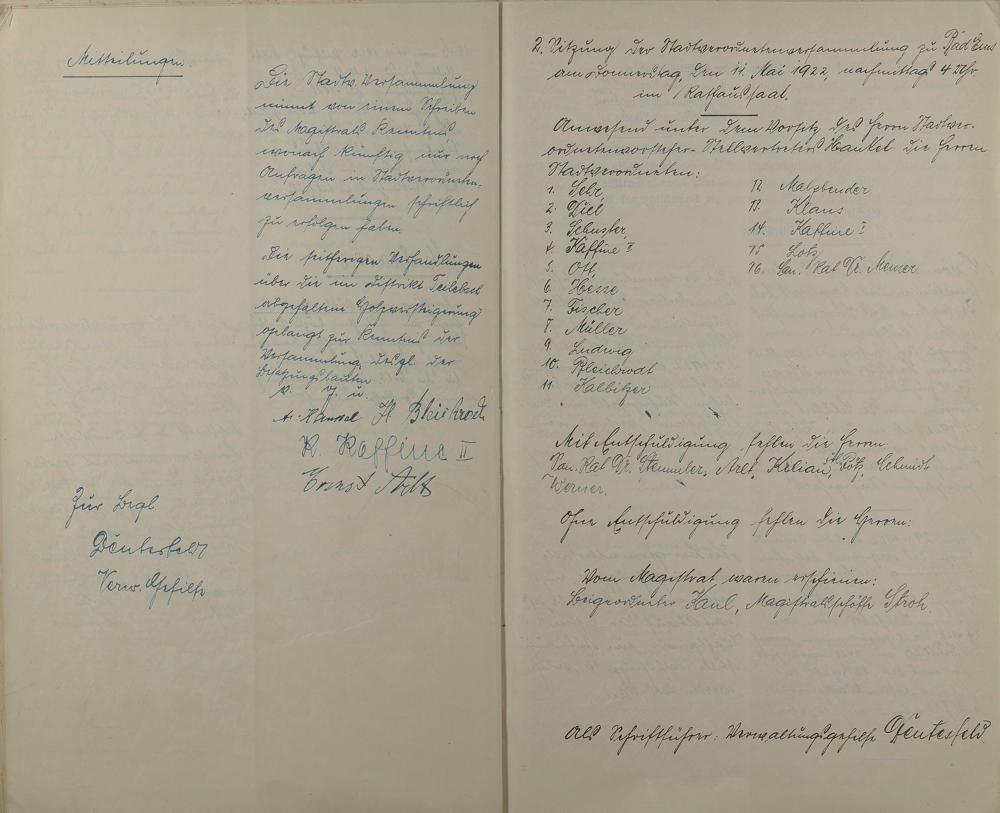 Mitteilungen
Die Stadtv. Versammlung
nimmt von einem Schreiben
des Magistrats Kenntnis
wonach künftig nur noch
Anfragen in Stadtverordneten-
versammlungen schriftlich
zu erfolgen haben.
Die seitherigen Verhandlungen
über die im Distrikt
abgehaltene Holzversteigerung
gelangt zur Kenntnis der
Versammlung, desgl. der
v. g. u.
A. Hankel Fr. Bleichrodt
K. Kaffine II
Ernst Arlt
Zur Begl.
Dentesfeld
Verw. Gehilfe
2. Sitzung der Stadtverordnetenversammlung zu Bad Ems
am Donnerstag, den 11. Mai 1922, nachmittags 4 Uhr.
im Rathaussaal.
Anwesend unter dem Vorsitz des Herrn Stadtver-
ordnetenvorsteher-Stellvertreters Hankel die Herren
Stadtverordneten:
1. Sehr,
2. Diel
3. Schuster,
4. Kaffine II
5. Ott,
6. Hesse
7. Fischer
8. Müller
9. Ludwig
10. Bleichrodt
11. Kalbitzer
12. Malzbender
13. Klaus
14. Kaffine I
15. Lotz
16. San. Rat Dr. Memser
Mit Entschuldigung fehlen die Herren
San. Rat Dr. Stemmler, Arlt, Kilian, Schmidt
Werner.
Ohne Entschuldigung fehlen die Herren:
Vom Magistrat waren erschienen:
Beigeordneter Kaul, Magistratsschöffe Stroh.
Als Schriftführer: Verwaltungsgehilfe Dentesfeld.